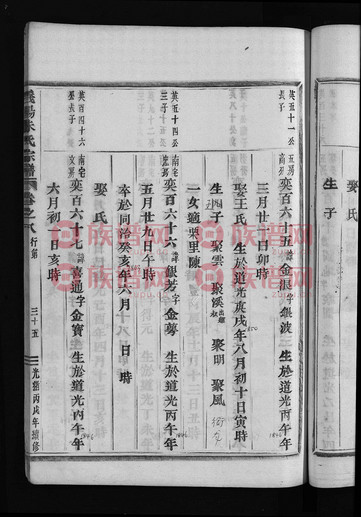 娶氏
生子
英五十一公
長子
五房
高房
奕百六十五諱金銀字銀波 生於道光丙午年
三月廿一日卯時
娶王氏 生於道光庚戌年八月初十日寅時
生四子 聚雲 聚溪出繼 聚明 聚風
一女適栗里陳
英五十四公
三子
南宅
奕百六十六諱銀芳字金蓴 生於道光丙午年
五月廿九日午時
卒於同治癸亥年六月十八日 時
英百四十六
公長子
南宅
文房
奕百六十七諱喜通字金寶 生於道光丙午年
六月初一日亥時
娶氏
朱氏宗譜
卷之八
行第
三十五
光緒丙戌年續修
族譜网